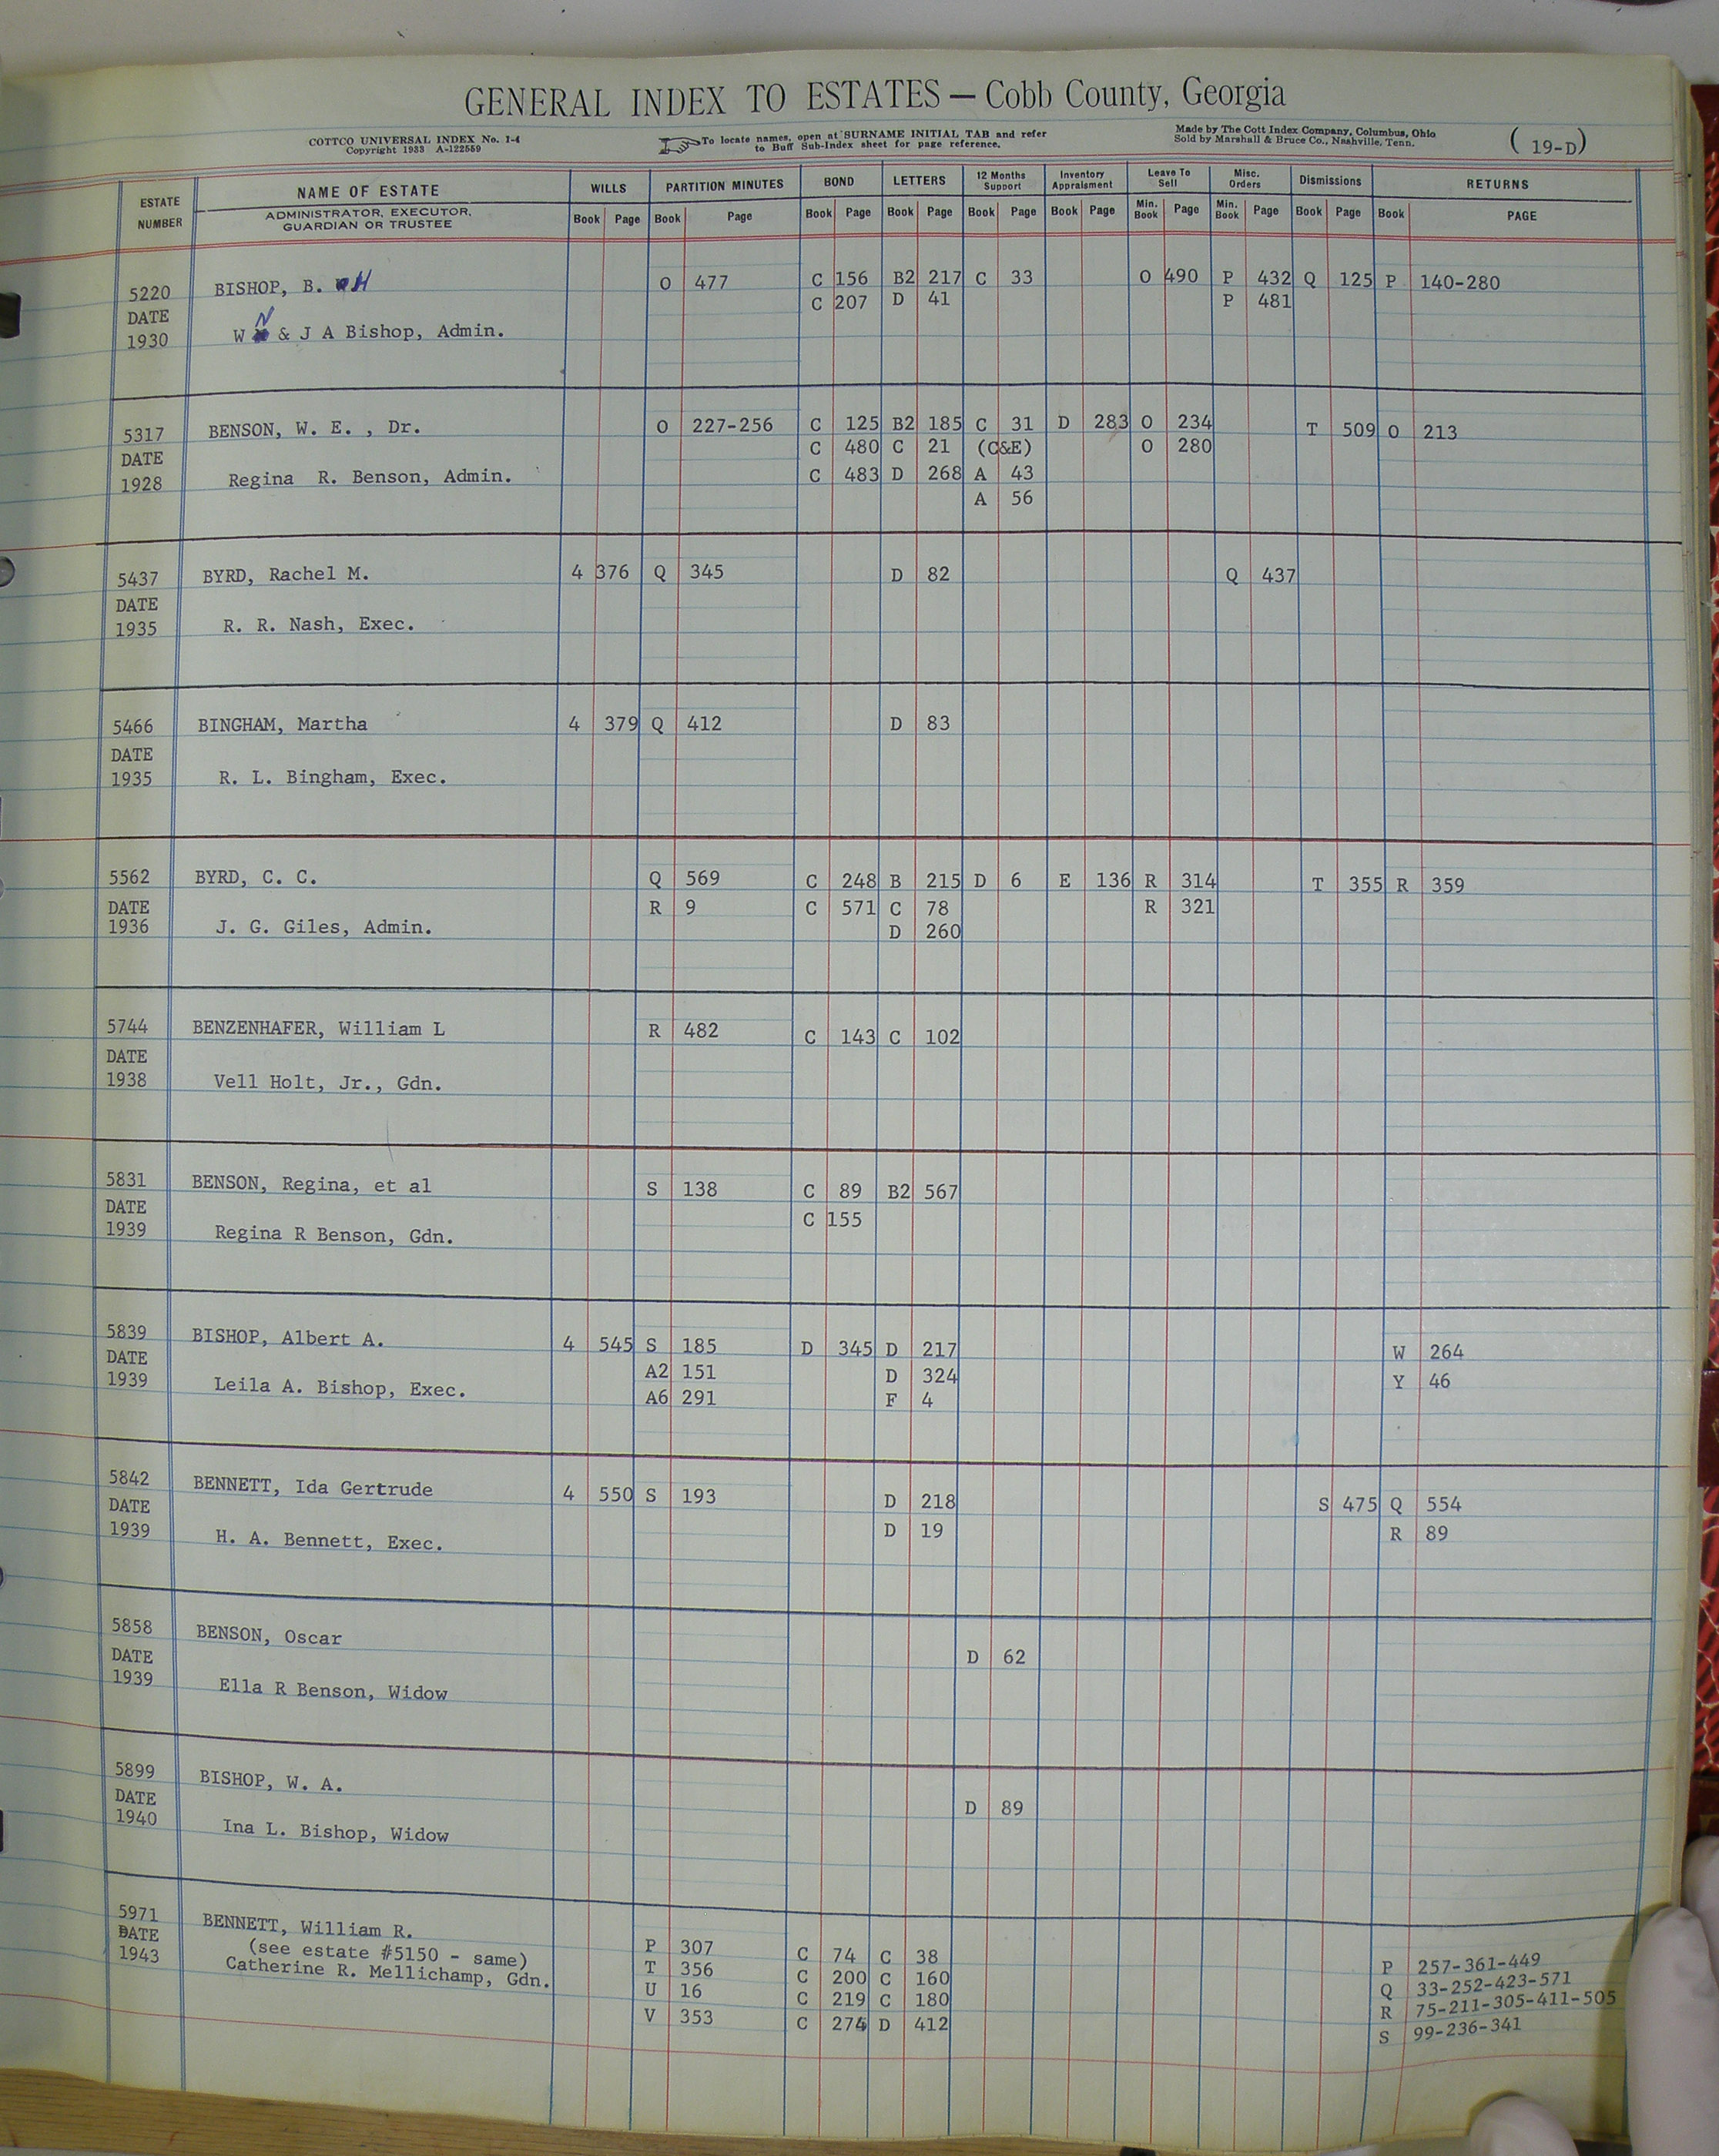 GENERAL INDEX TO ESTATES — Cobb County, Georgia
COTTCO UNIVERSAL INDEX No. 1-4
Copyright 1933 A-122559
To locate names, open at SURNAME INITIAL TAB and refer
to Buff Sub-Index sheet for page reference.
Made by The Cott Index Company, Columbus, Ohio
Sold by Marshall & Bruce Co., Nashville, Tenn.
( 19-D)
ESTATE NUMBER NAME OF ESTATE WILLS PARTITION MINUTES BOND LETTERS 12 Months Support Inventory Appraisment Leave To Sell Misc. Orders Dismissions RETURNS
ADMINISTRATOR, EXECUTOR, GUARDIAN OR TRUSTEE Book Page Book Page Book Page Book Page Book Page Book Page Min. Book Page Min. Book Page Book Page Book PAGE
5220 BISHOP, B. H O 477 C 156 B2 217 C 33 O 490 P 432 Q 125 P 140-280
DATE C 207 D 41 P 481
1930 W N & J A Bishop, Admin.
5317 BENSON, W. E. , Dr. O 227-256 C 125 B2 185 C 31 D 283 O 234 T 509 O 213
DATE C 480 C 21 (C&E) O 280
1928 Regina R. Benson, Admin. C 483 D 268 A 43
A 56
5437 BYRD, Rachel M. 4 376 Q 345 D 82 Q 437
DATE
1935 R. R. Nash, Exec.
5466 BINGHAM, Martha 4 379 Q 412 D 83
DATE
1935 R. L. Bingham, Exec.
5562 BYRD, C. C. Q 569 C 248 B 215 D 6 E 136 R 314 T 355 R 359
DATE R 9 C 571 C 78 R 321
1936 J. G. Giles, Admin. D 260
5744 BENZENHAFER, William L R 482 C 143 C 102
DATE
1938 Vell Holt, Jr., Gdn.
5831 BENSON, Regina, et al S 138 C 89 B2 567
DATE C 155
1939 Regina R Benson, Gdn.
5839 BISHOP, Albert A. 4 545 S 185 D 345 D 217 W 264
DATE A2 151 D 324 Y 46
1939 Leila A. Bishop, Exec. A6 291 F 4
5842 BENNETT, Ida Gertrude 4 550 S 193 D 218 S 475 Q 554
DATE D 19 R 89
1939 H. A. Bennett, Exec.
5858 BENSON, Oscar D 62
DATE
1939 Ella R Benson, Widow
5899 BISHOP, W. A. D 89
DATE
1940 Ina L. Bishop, Widow
5971 BENNETT, William R. P 307 C 74 C 38 P 257-361-449
DATE (see estate #5150 - same) T 356 C 200 C 160 Q 33-252-423-571
1943 Catherine R. Mellichamp, Gdn. U 16 C 219 C 180 R 75-211-305-411-505
V 353 C 274 D 412 S 99-236-341